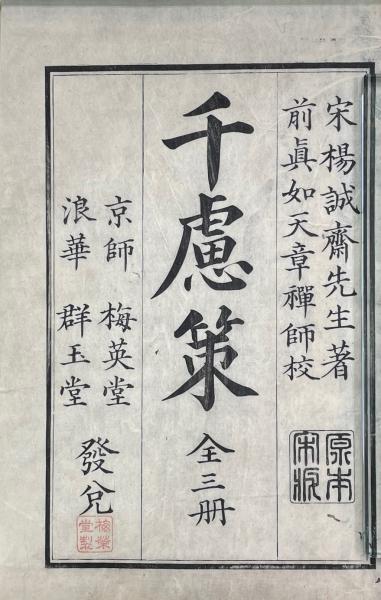 宋楊誠齋先生著
前眞如天章禪師校
原本
宋板
千慮策
全三册
京師 梅英堂
浪華 群玉堂
發兌
梅榮
堂製